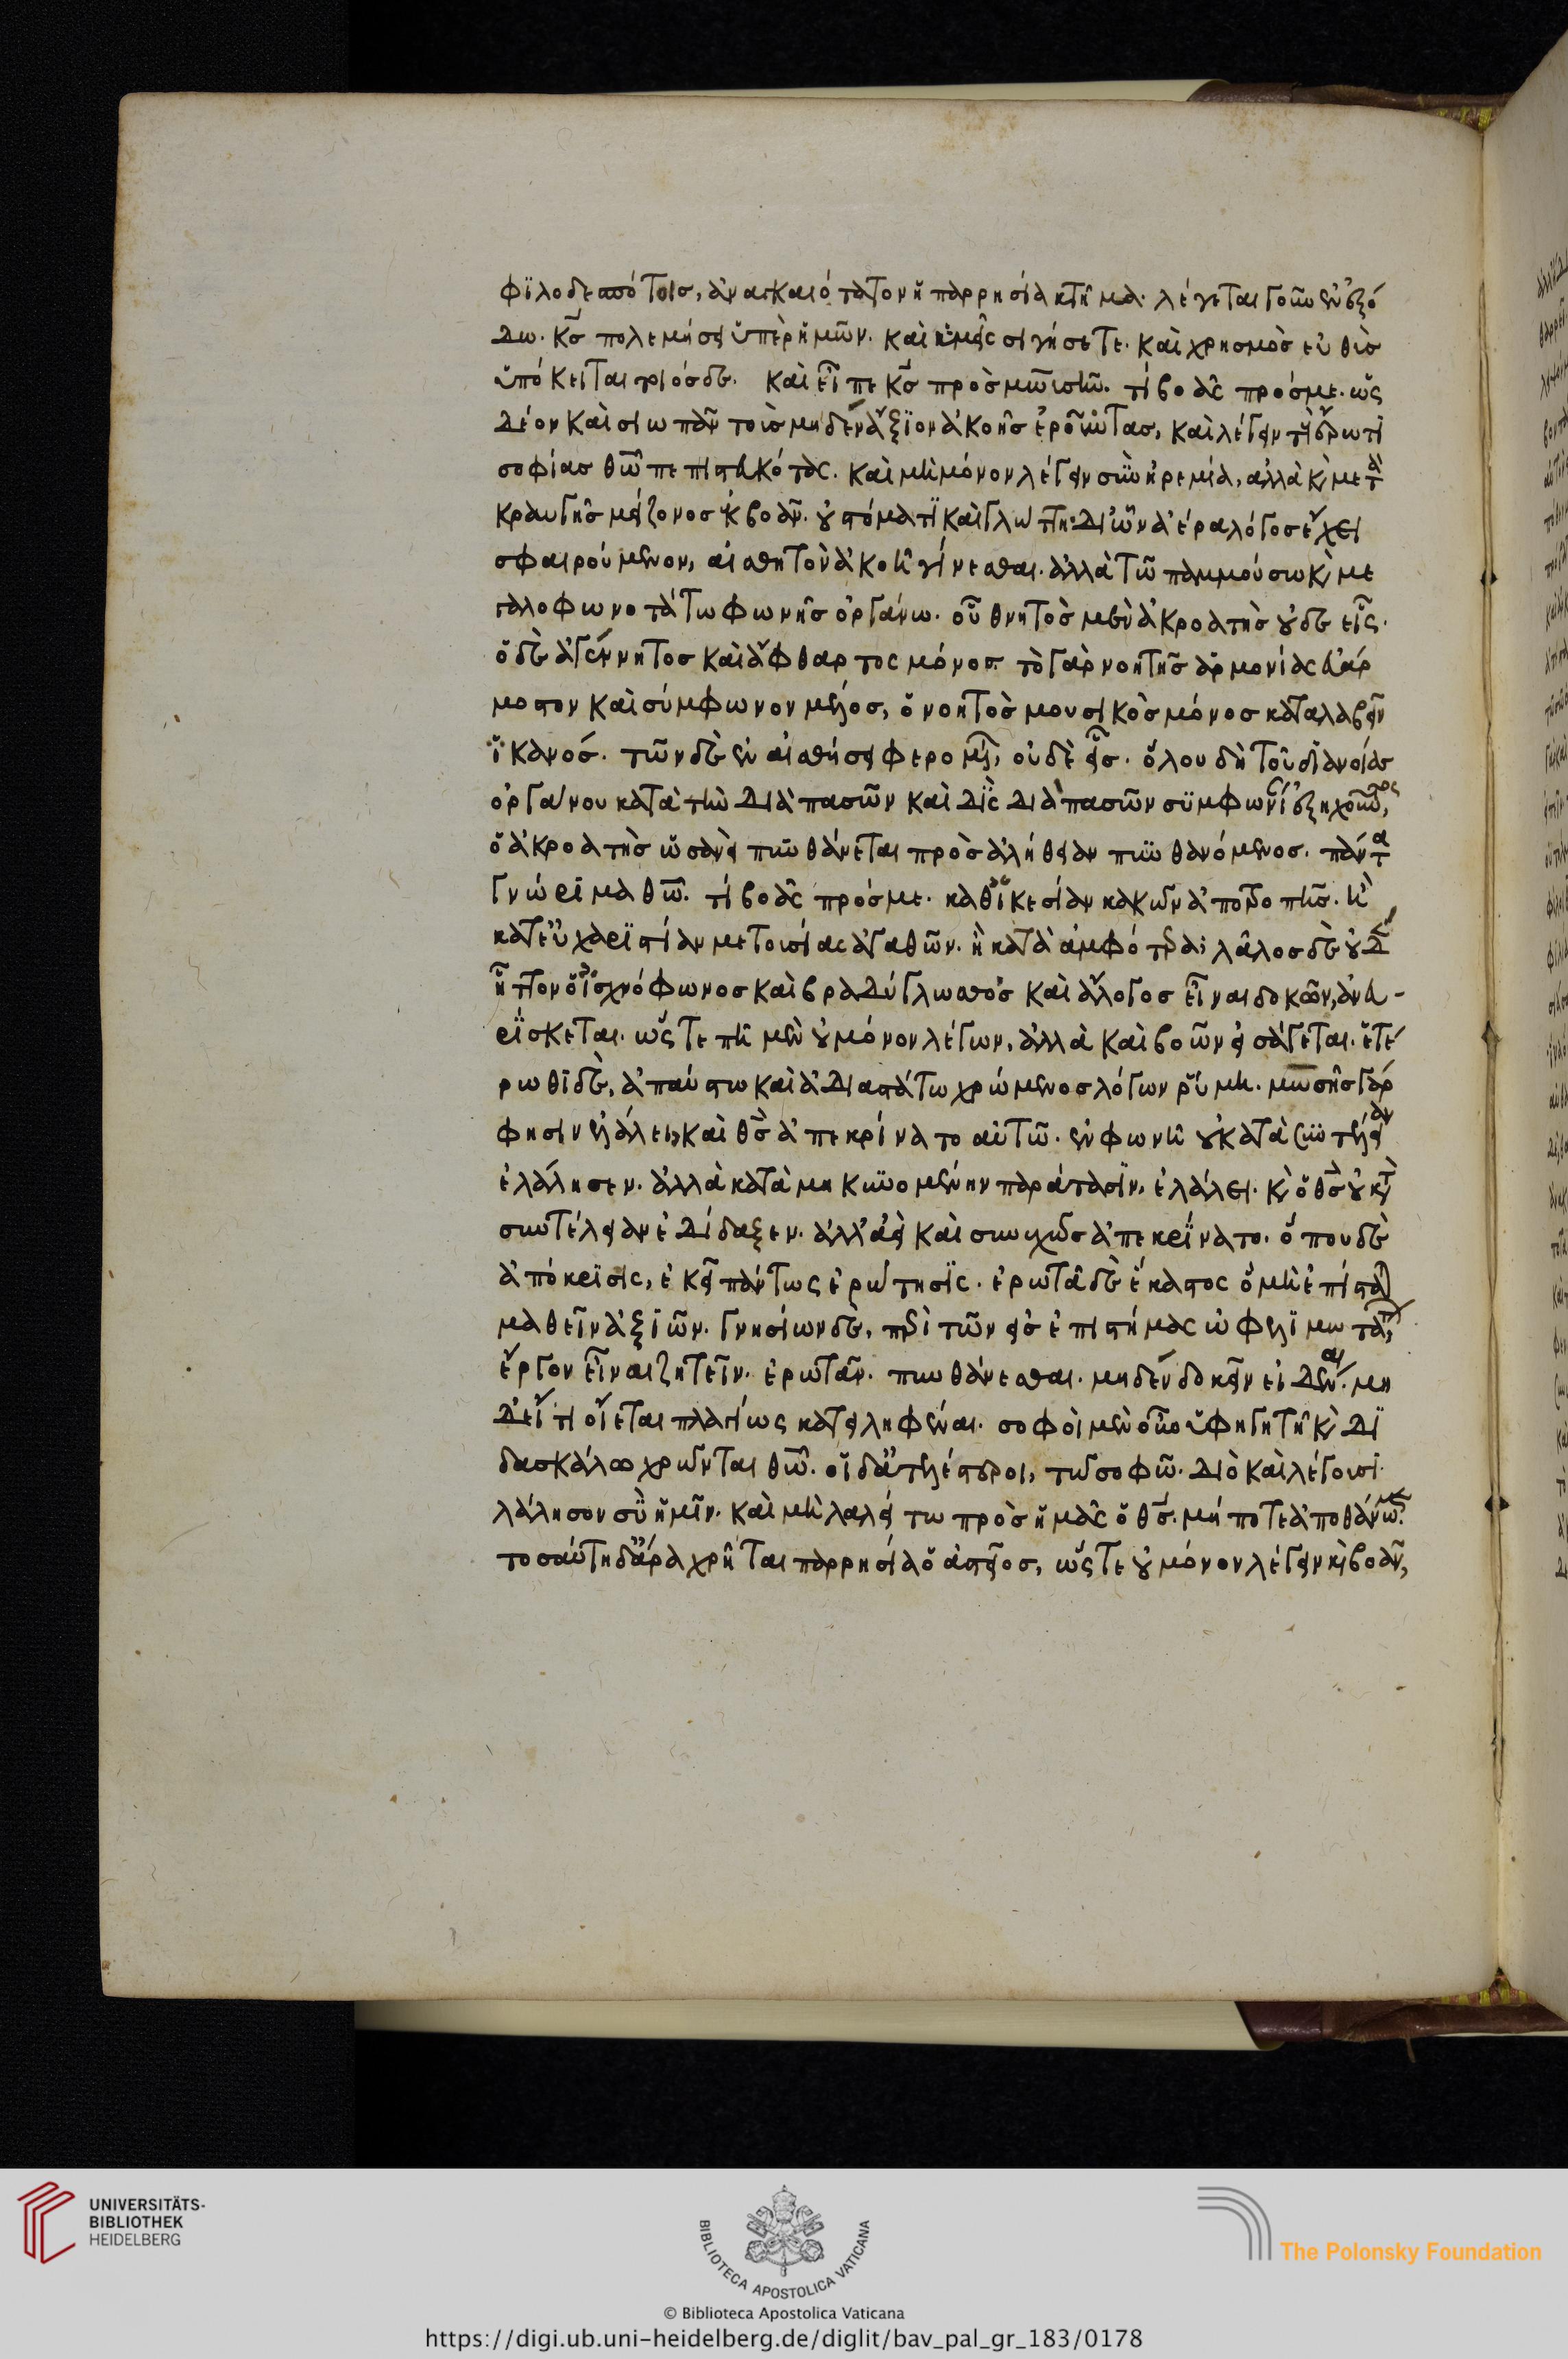 φϊλοδεσπότοις, ἀναγκαιότατον ἡ παρρησία κτῆμα. λέγεται γοῦν ἐν ἐξό
δω. κς πολεμήσει ὑπὲρ ἡμῶν. καὶ ἡμεῖς σιγήσετε. καὶ χρησμὸς εὐθὺς
ὑπόκειται τοιόσδε. καὶ εἶπε κς πρὸς μωϋσῆν. τί βοᾶς πρόσμε. ὡς
δέον καὶ σιωπᾶν τοὺς μηδὲν ἄξϊον ἀκοῆς ἐροῦντας, καὶ λέγειν τῆ ἔρωτι
σοφίας θῶ πεπιστευκότας. καὶ μὴ μόνον λέγειν σὺν ἠρεμία, ἀλλὰ κ μετὰ
κραυγῆς μείζονος ἐκβοᾶν. οὐ στόματϊ καὶ γλώττη δι ὧν ἀέρα λόγος ἔχει
σφαιρούμενον, αἰσθητὸν ἀκοῆ γίνεσθαι. ἀλλὰ τῶ παμμούσω κ με
γαλοφωνοτάτω φωνῆς ὀργάνω. οὗ θνητὸς μὲν ἀκροατὴς οὐδὲ εἷς.
ὁ δὲ ἀγέννητος καὶ ἄφθαρτος μόνος. τὸ γὰρ νοητῆς ἁρμονίας εὐάρ
μοστον καὶ σύμφωνον μέλος, ὁ νοητὸς μουσικὸς μόνος καταλαβεῖν
ἱκανός. τῶν δὲ ἐν αἰσθήσει φερομ, οὐδὲ εἷς. ὅλου δὴ τοῦ διανοίας
ὀργάνου κατὰ τὴν διὰ πασῶν καὶ δὶς διὰ πασῶν συμφωνί ἐξηχοῦντος,
ὁ ἀκροατὴς ὡσανεὶ πυνθάνεται πρὸς ἀλήθειαν πυνθανόμενος. πάντα
γνώριμα θῶ. τί βοᾶς πρόσμε. καθ ἱκεσίαν κακῶν ἀποτροπῆς. ἢ
κατ εὐχαριστίαν μετουσίας ἀγαθῶν. ἢ κατὰ ἀμφότερα; λάλος δὲ οὐδὲν
ἧττον ὁ ἰσχνόφωνος καὶ βραδύγλωσσος καὶ ἄλογος εἶναι δοκῶν, ἀνευ-
ρίσκεται. ὥςτε πῆ μὲν οὐ μόνον λέγων, ἀλλὰ καὶ βοῶν εἰσάγεται. ἑτέ
ρωθϊ δὲ, ἀπαύστω καὶ ἀδιαστάτω χρώμενος λόγων ῥύμη. μωσῆς γάρ
φησιν ἐλάλει, καὶ θς ἀπεκρίνατο αὐτῶ. ἐν φωνῆ οὐ κατὰ συντέλειαν
ἐλάλησεν. ἀλλὰ κατὰ μηκυνομένην παράτασϊν, ἐλάλει. κ ὁ θς οὐ κατὰ
συντέλειαν ἐδίδαξεν. ἀλλ' ἀεὶ καὶ συνεχῶς ἀπεκρίνατο. ὅπου δὲ
ἀπόκρισις, ἐκεῖ πάντως ἐρώτησϊς. ἐρωτᾶ δὲ ἕκαστος ὃ μὴ ἐπίσταται
μαθεῖν ἀξιῶν. γνησίων δὲ, περὶ τῶν εἰς ἐπιστήμας ὠφελίμωτατον
ἔργον εἶναι ζητεῖν. ἐρωτᾶν. πυνθάνεσθαι. μηδὲν δοκεῖν εἰδέναι. μη
δέ τι οἴεται παγίως κατειληφέναι. σοφοὶ μὲν οὖν ὑφηγητῆ κ δϊ
δασκάλω χρῶνται θῶ. οἱ δ' ἀτελέστεροι, τῶ σοφῶ. διὸ καὶ λέγουσι.
λάλησον σὺ ἡμῖν. καὶ μὴ λαλείτω πρὸς ἡμᾶς ὁ θς. μή ποτε ἀποθάνωμεν.
τοσαύτη δ' ἄρα χρῆται παρρησία ὁ ἀστεῖος, ὥςτε οὐ μόνον λέγειν κ βοᾶν,
UNIVERSITÄTS-
BIBLIOTHEK
HEIDELBERG
BIBLIOTECA APOSTOLICA VATICANA
The Polonsky Foundation
© Biblioteca Apostolica Vaticana
https://digi.ub.uni-heidelberg.de/diglit/bav_pal_gr_183/0178